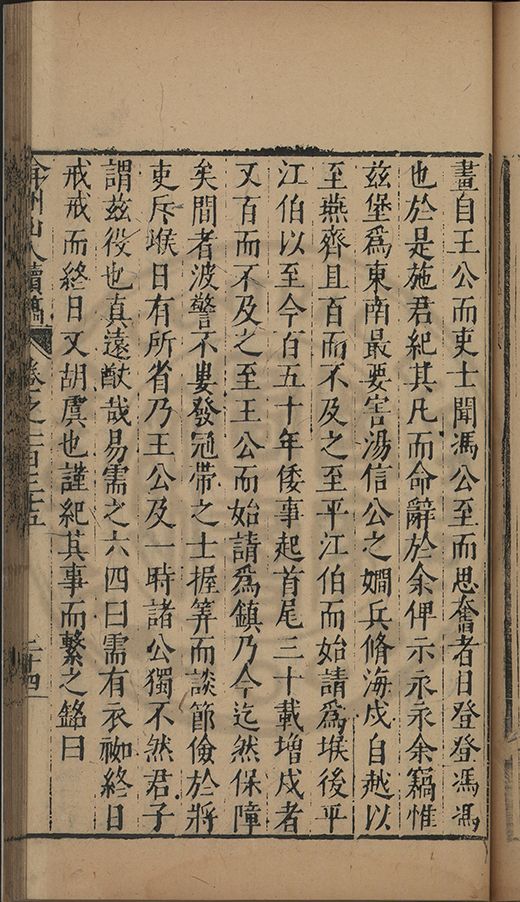 畫自王公而吏士聞馮公至而思奮者日登登馮馮
也於是施君紀其凡而命辭於余俾示永永余竊惟
兹堡爲東南最要害湯信公之嫺兵脩海戍自越以
至燕齊且百而不及之至平江伯而始請爲堠後平
江伯以至今百五十年倭事起首尾三十載增戍者
又百而不及之至王公而始請爲鎮乃今迄然保障
矣間者波警不婁發冠帶之士握筭而談節儉於將
吏斥堠日有所省乃王公及一時諸公獨不然君子
謂兹役也真遠猷哉易需之六四曰需有衣袽終日
戒戒而終日又胡虞也謹紀其事而繫之銘曰
弇州山人續稿
卷之
二十四